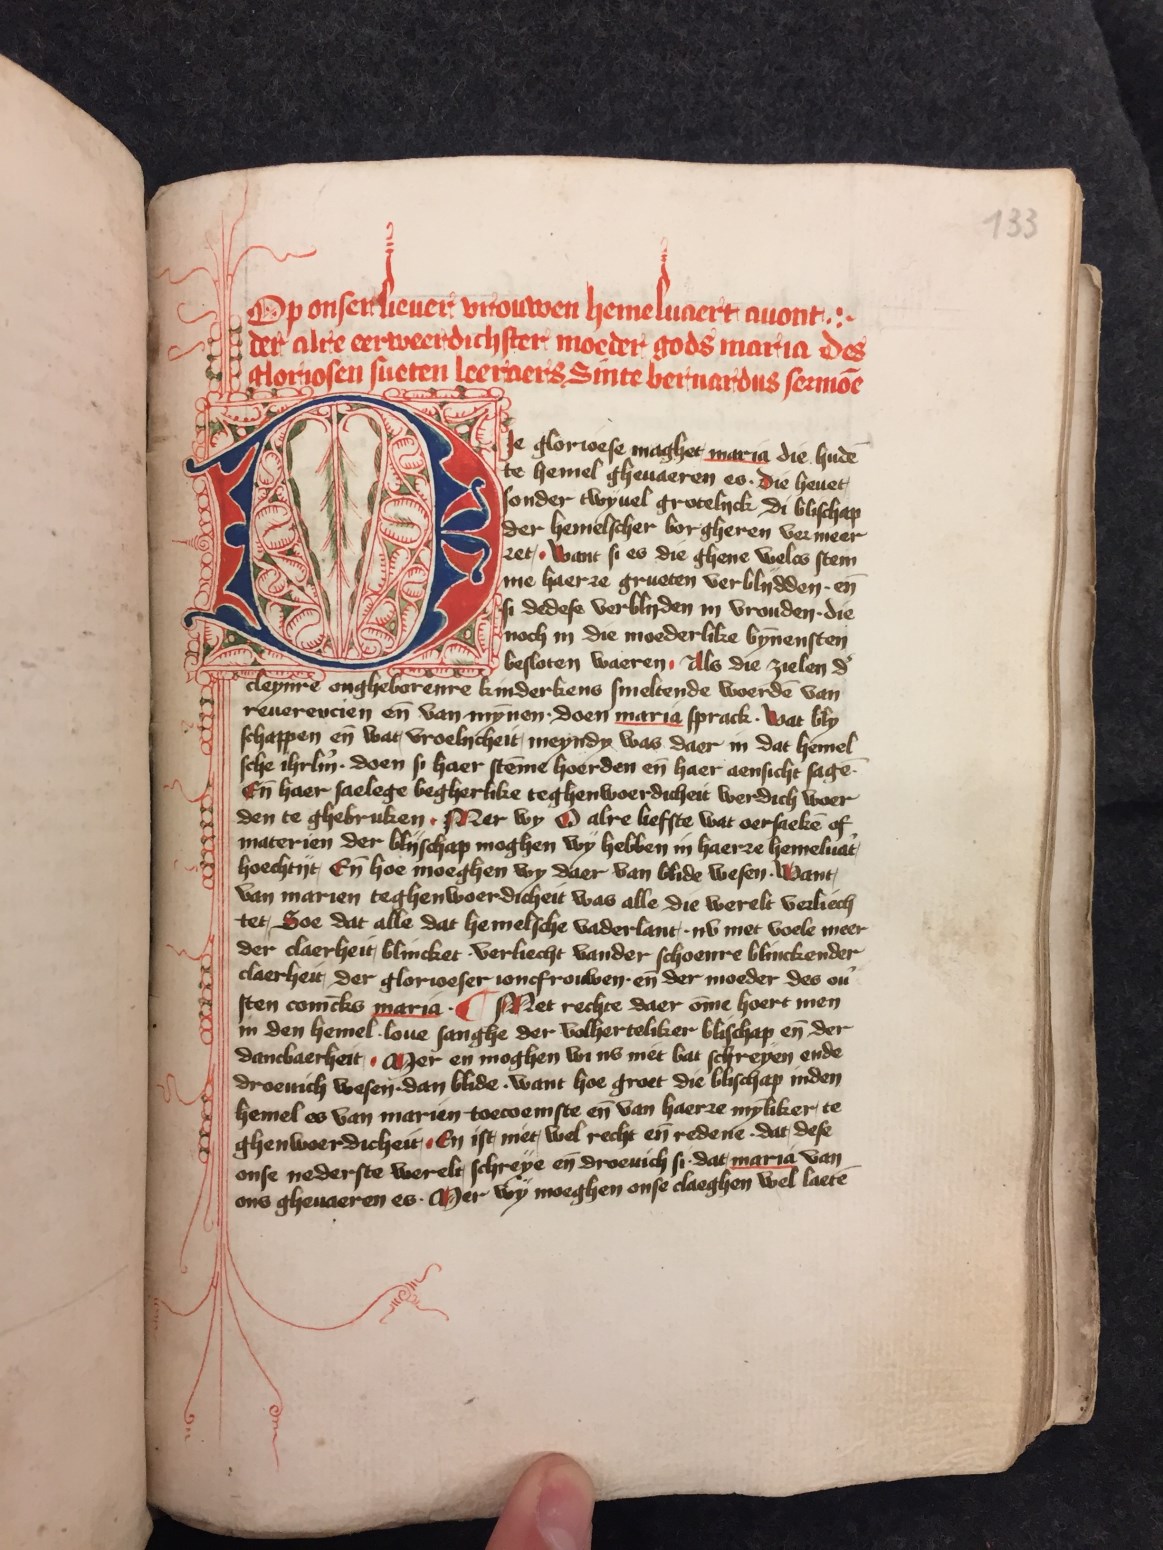 133
Op onser lieuer vrouwen hemeluaert auont
der alre eerweerdichster moeder gods maria des
gloriosen sueten leeraers Sinte bernardus sermoē
Die glorioese maghet maria die hudē
te hemel gheuaeren es. Die heuet
sonder twyuel grotelijck di blischap
der hemelscher borgheren vermeer
ret. Want si es die ghene welcs stem
me haerre grueten verblijdden. en̄
si dedese verblijden in vrouden. die
noch in die moederlike by̅nensten
besloten waeren. Als die zielen d'
cleynre ongheborenre kinderkens smeltende woerdē van
reuerencien en̄ van mȳnen. doen maria sprack. Wat bly
schappen en̄ wat vroelijcheit meyndy was daer in dat hemel
sche ihrlm̄. doen si haer stēme hoerden en̄ haer aensicht sagē.
En̄ haer saelege begherlike teghenwoerdicheit werdich woer
den te ghebruken. Mer wy O alre liefste wat oersaekē of
materien der blijschap moghen wij hebben in haerre hemeluat'
hoechtijt. En̄ hoe moeghen wy daer van blide wesen. Want
van marien teghenwoerdicheit was alle die werelt verliech
tet. Soe dat alle dat hemelsche vaderlant. nv met voele meer
der claerheit blincket. verliecht vander schoenre blinckender
claerheit der glorioeser ioncfrouwen. en̄ der moeder des ou'
sten conīcks maria. ¶ Met rechte daer ōme hoert men
in den hemel. loue sanghe der volherteliker blischap en̄ der
dancbaerheit. Mer en moghen wi ns niet bat schreyen ende
droeuich wesen. dan blide. want hoe groet die blischap inden
hemel es van marien toecoemste en̄ van haerre myliker te
ghenwoerdicheit. En ist niet wel recht en̄ redene. dat dese
onse nederste werelt schreye en̄ droeuich si. dat maria van
ons gheuaeren es. Mer wij moeghen onse claeghen wel laetē